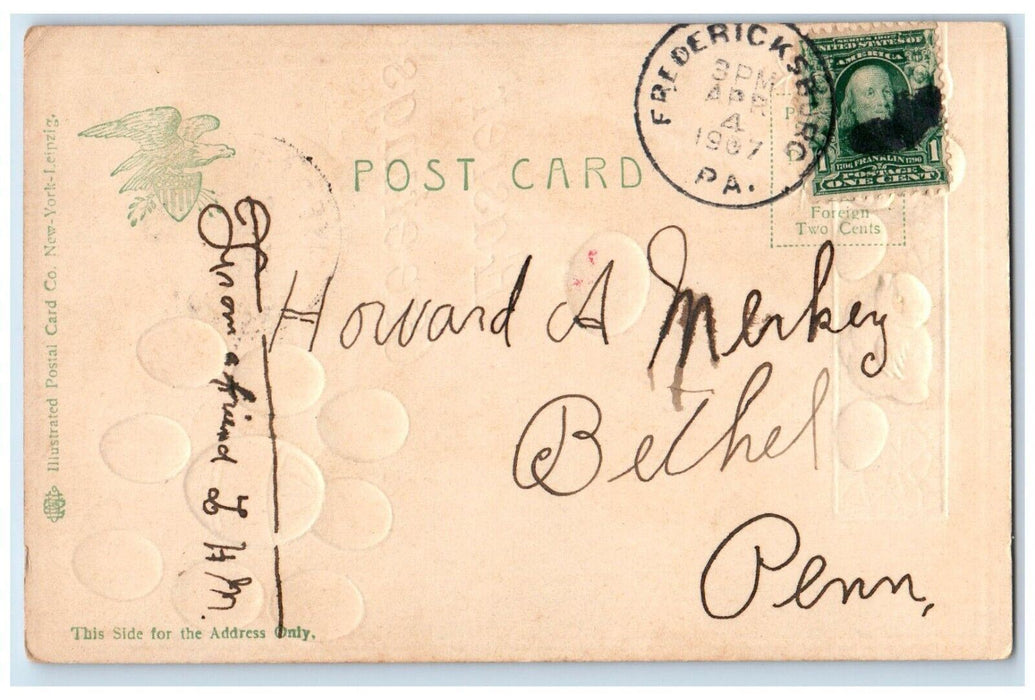 POST CARD
FREDERICKSBURG
3 PM
APR
4
1907
PA.
SERIES 1902
UNITED STATES OF
AMERICA
1706 FRANKLIN 1790
1
POSTAGE
ONE CENT
Foreign
Two Cents
Howard A Merkey
Bethel
Penn,
From a friend
H M.
Illustrated Postal Card Co. New-York-Leipzig.
This Side for the Address Only.